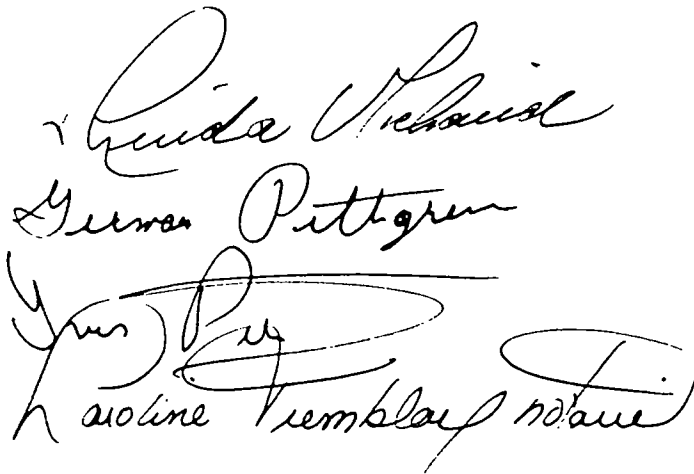 Linda Michaud
German Pettigrew
Yves
Caroline Tremblay notaire